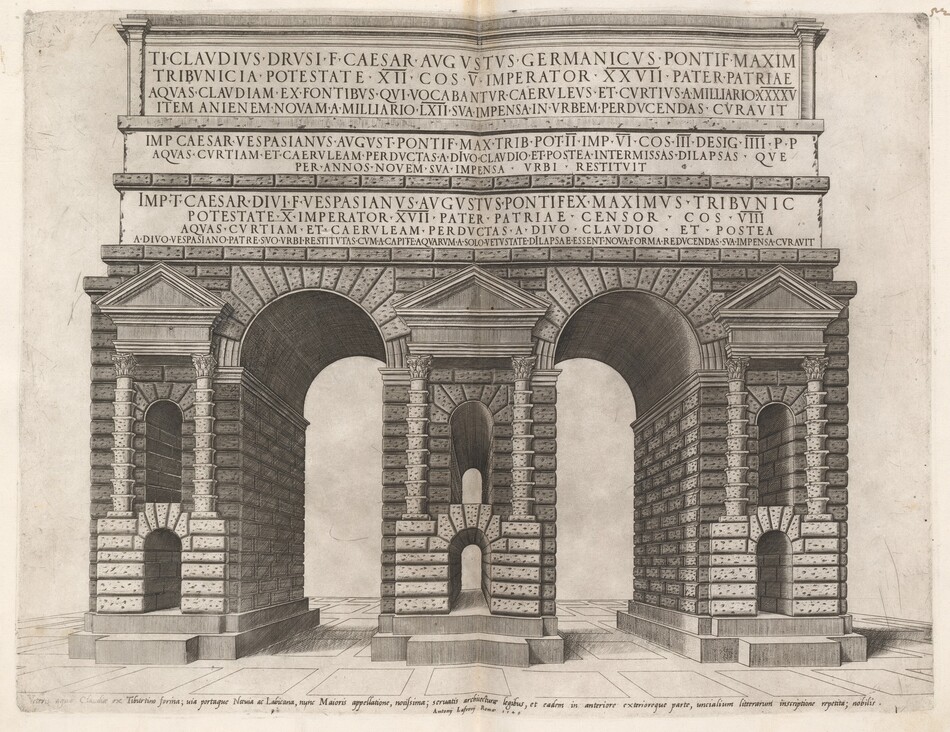 TI·CLAVDIVS·DRVSI·F·CAESAR·AVGVSTVS·GERMANICVS·PONTIF·MAXIM
TRIBVNICIA·POTESTATE·XII·COS·V·IMPERATOR·XXVII·PATER·PATRIAE
AQVAS·CLAVDIAM·EX·FONTIBVS·QVI·VOCABANTVR·CAERVLEVS·ET·CVRTIVS·A·MILLIARIO·XXXXV
ITEM·ANIENEM·NOVAM·A·MILLIARIO·LXII·SVA·IMPENSA·IN·VRBEM·PERDVCENDAS·CVRAVIT
IMP·CAESAR·VESPASIANVS·AVGVST·PONTIF·MAX·TRIB·POT·II·IMP·VI·COS·III·DESIG·IIII·P·P
AQVAS·CVRTIAM·ET·CAERVLEAM·PERDVCTAS·A·DIVO·CLAVDIO·ET·POSTEA·INTERMISSAS·DILAPSAS·QVE
PER·ANNOS·NOVEM·SVA·IMPENSA·VRBI·RESTITVIT
IMP·T·CAESAR·DIVI·F·VESPASIANVS·AVGVSTVS·PONTIFEX·MAXIMVS·TRIBVNIC
POTESTATE·X·IMPERATOR·XVII·PATER·PATRIAE·CENSOR·COS·VIII
AQVAS·CVRTIAM·ET·CAERVLEAM·PERDVCTAS·A·DIVO·CLAVDIO·ET·POSTEA
A·DIVO·VESPASIANO·PATRE·SVO·VRBI·RESTITVTAS·CVM·A·CAPITE·AQVARVM·A·SOLO·VETVSTATE·DILAPSAE·ESSENT·NOVA·FORMA·REDVCENDAS·SVA·IMPENSA·CVRAVIT
aquæ Claudiæ ex Tiburtino fornix; uia portaque Næuia ac Labicana, nunc Maioris appellatione, notissima; seruatis architecturæ legibus, et eadem in anteriore exterioreque parte, uncialium litterarum inscriptione repetita; nobilis.
Antonij Lafrerij Romæ